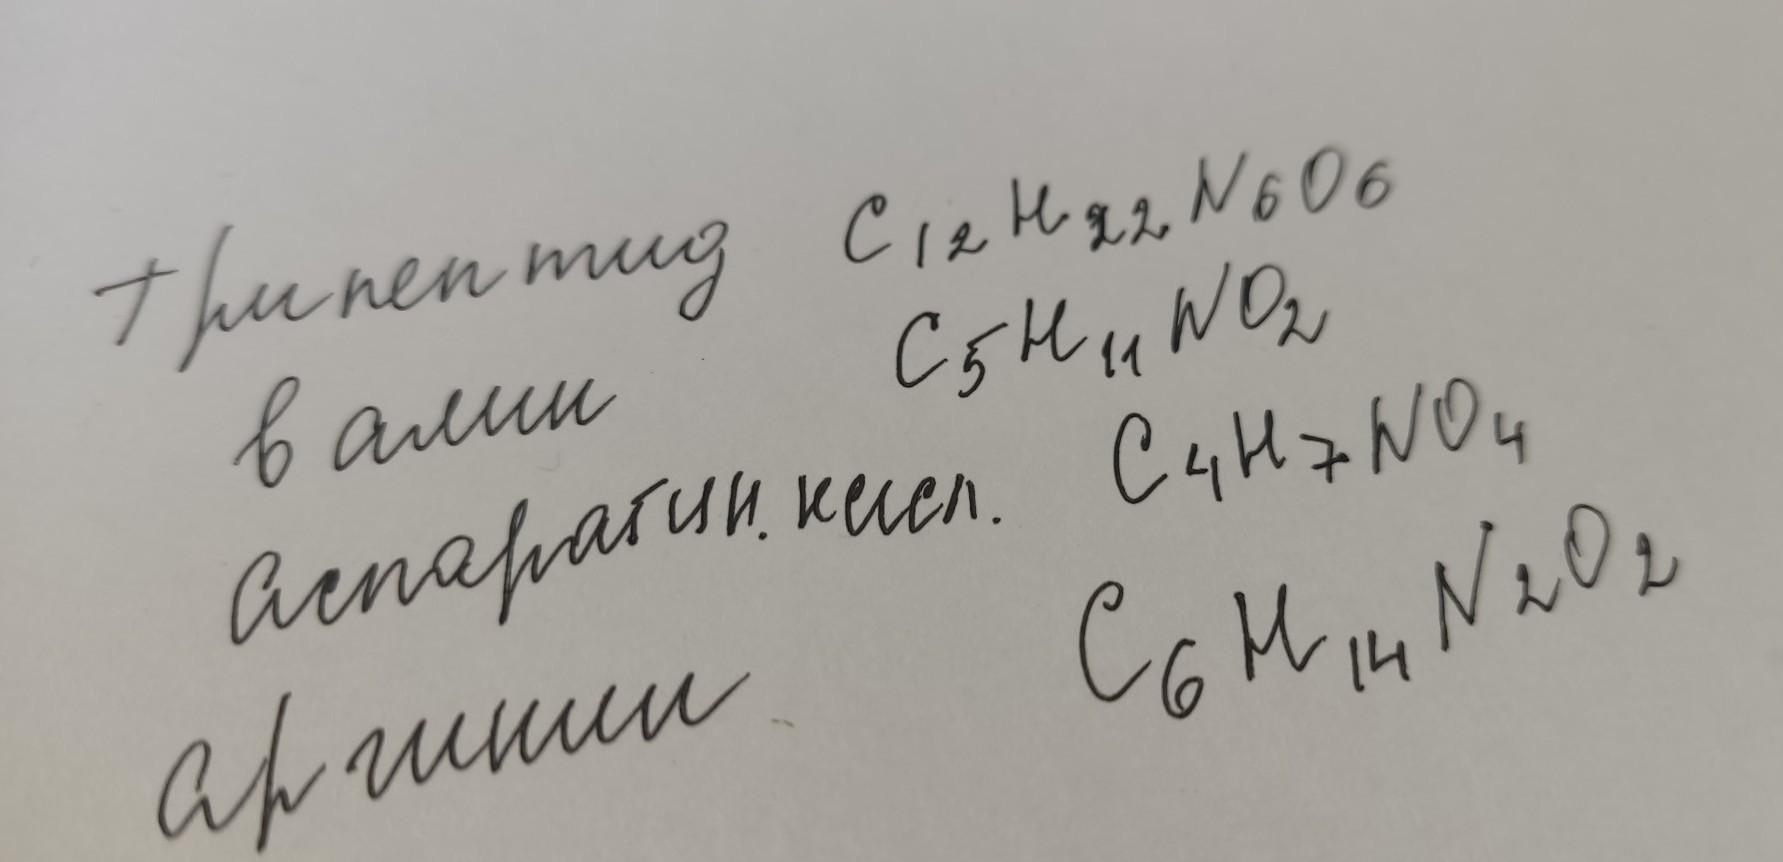 трипептид C₁₂H₂₂N₆O₆
валин C₅H₁₁NO₂
аспарагин. кисл. C₄H₇NO₄
аргинин C₆H₁₄N₂O₂